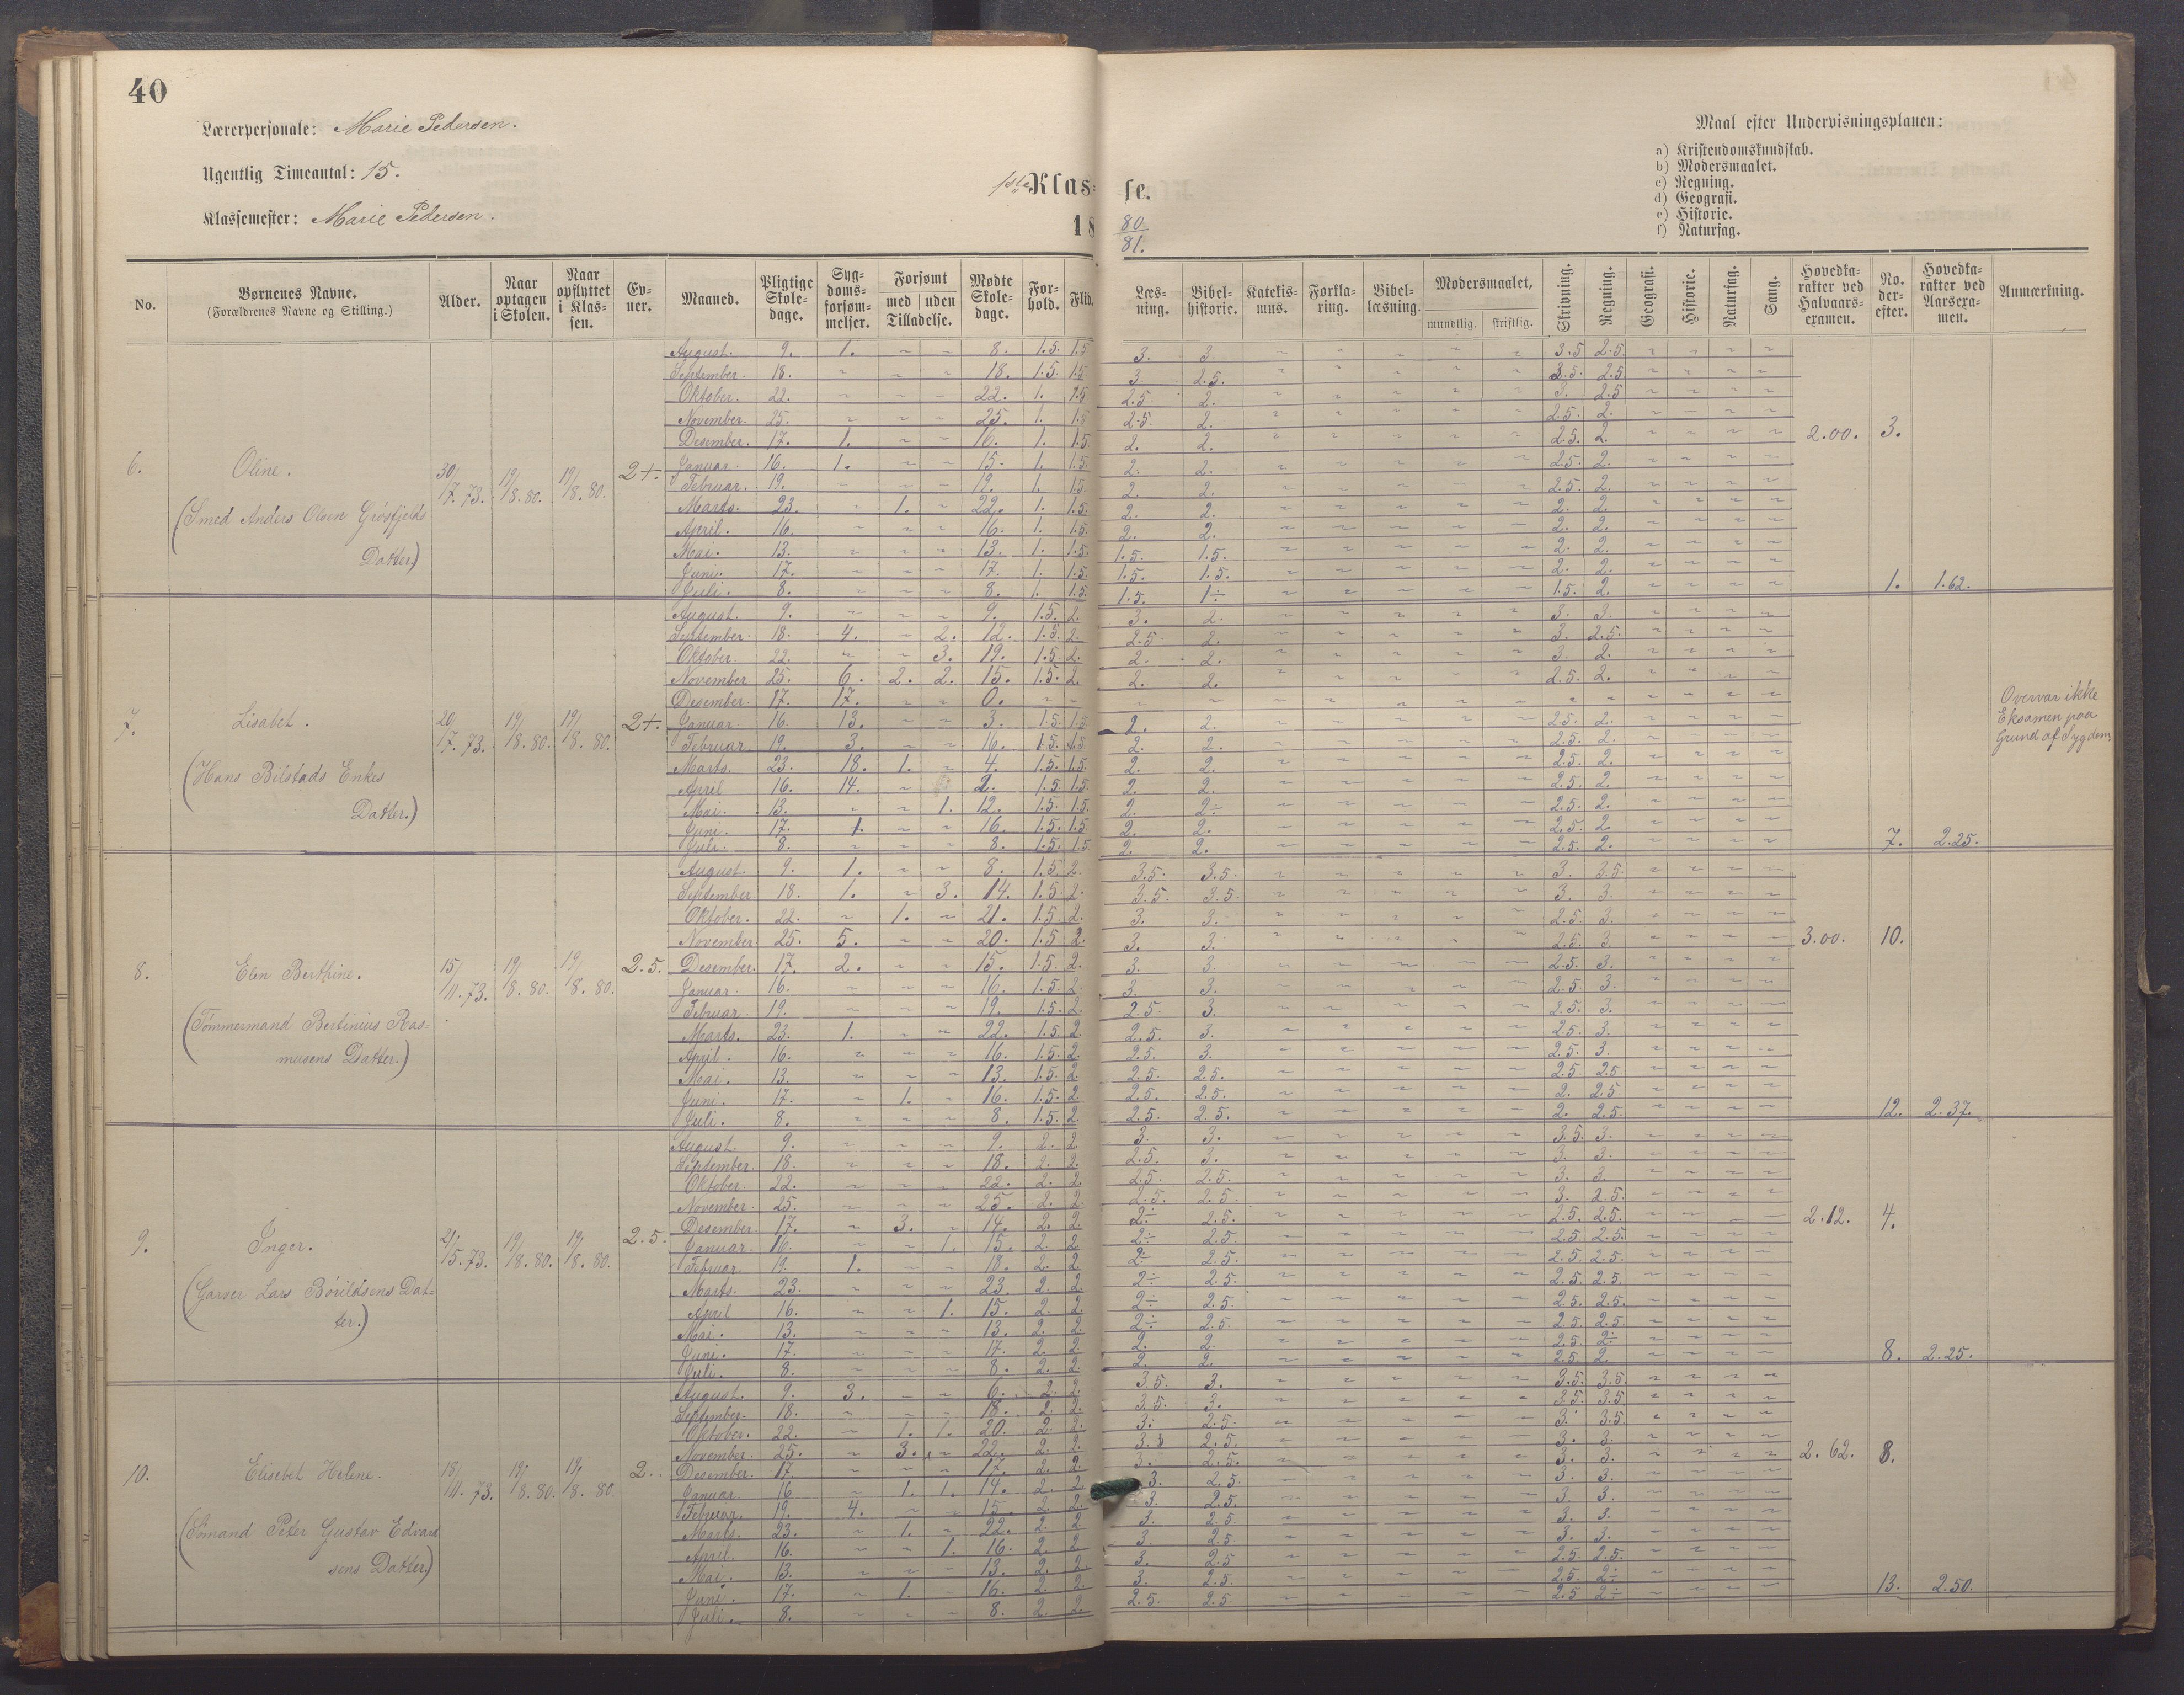 40
Lærerpersonale: Marie Pedersen.
Ugentlig Timeantal: 15.
Klassemester: Marie Pedersen.
1ste Klasse.
18 80/81.
Maal efter Undervisningsplanen:
a) Kristendomskundskab.
b) Modersmaalet.
c) Regning.
d) Geografi.
e) Historie.
f) Naturfag.
No. Børnenes Navne. (Forældrenes Navne og Stilling.) Alder. Naar optagen i Skolen. Naar opflyttet i Klassen. Evner. Maaned. Pligtige Skoledage. Sygdomsforsømmelser. Forsømt med uden Tilladelse. Mødte Skoledage. Forhold. Flid. Læsning. Bibelhistorie. Katekismus. Forklaring. Bibellæsning. Modersmaalet, mundtlig. skriftlig. Skrivning. Regning. Geografi. Historie. Naturfag. Sang. Hovedkarakter ved Halvaarsexamen. No. derefter. Hovedkarakter ved Aarsexamen. Anmærkning.
6. Oline. (Smed Anders Olsen Grøsfjelds Datter.) 30/7. 73. 19/8. 80. 19/8. 80. 2+.
August. 9. 1. ~ ~ 8. 1.5. 1.5 3. 3. ~ ~ ~ ~ ~ 3.5 2.5. ~ ~ ~ ~
September. 18. ~ ~ ~ 18. 1.5. 1.5 3. 2.5. ~ ~ ~ ~ ~ 3.5. 2.5 ~ ~ ~ ~
Oktober. 22. ~ ~ ~ 22. 1. 1.5 2.5. 2. ~ ~ ~ ~ ~ 3. 2.5 ~ ~ ~ ~
November. 25. ~ ~ ~ 25. 1. 1.5 2.5. 2. ~ ~ ~ ~ ~ 2.5. 2. ~ ~ ~ ~
Desember. 17. 1. ~ ~ 16. 1. 1.5. 2. 2. ~ ~ ~ ~ ~ 2.5. 2. ~ ~ ~ ~ 2.00. 3.
Januar. 16. 1. ~ ~ 15. 1. 1.5. 2. 2. ~ ~ ~ ~ ~ 2.5. 2. ~ ~ ~ ~
Februar. 19. ~ ~ ~ 19. 1. 1.5. 2. 2. ~ ~ ~ ~ ~ 2.5. 2. ~ ~ ~ ~
Marts. 23. ~ 1. ~ 22. 1. 1.5. 2. 2. ~ ~ ~ ~ ~ 2. 2. ~ ~ ~ ~
April. 16. ~ ~ ~ 16. 1. 1.5. 2. 2. ~ ~ ~ ~ ~ 2. 2. ~ ~ ~ ~
Mai. 13. ~ ~ ~ 13. 1. 1.5. 1.5. 1.5. ~ ~ ~ ~ ~ 2. 2. ~ ~ ~ ~
Juni. 17. ~ ~ ~ 17. 1. 1.5. 1.5. 1.5. ~ ~ ~ ~ ~ 2. 2. ~ ~ ~ ~
Juli. 8. ~ ~ ~ 8. 1. 1.5. 1.5. 1÷ ~ ~ ~ ~ ~ 1.5. 2. ~ ~ ~ ~ 1. 1.62.
7. Lisabet. (Hans Bilstads Enkes Datter.) 20/7. 73. 19/8. 80. 19/8. 80. 2+.
August. 9. ~ ~ ~ 9. 1.5. 2. 3. 2. ~ ~ ~ ~ ~ 3. 3. ~ ~ ~ ~
September. 18. 4. ~ 2. 12. 1.5. 2. 2.5. 2. ~ ~ ~ ~ ~ 3. 2.5. ~ ~ ~ ~
Oktober. 22. ~ ~ 3. 19. 1.5. 2. 2. 2. ~ ~ ~ ~ ~ 3. 2. ~ ~ ~ ~
November 25. 6. 2. 2. 15. 1.5. 2. 2. 2. ~ ~ ~ ~ ~ 2.5. 2. ~ ~ ~ ~
Desember. 17. 17. ~ ~ 0. ~ ~ ~ ~ ~ ~ ~ ~ ~ ~ ~ ~ ~ ~ ~
Januar. 16. 13. ~ ~ 3. 1.5. 1.5 2. 2. ~ ~ ~ ~ ~ 2.5. 2. ~ ~ ~ ~
Februar. 19. 3. ~ ~ 16. 1.5. 1.5 2. 2. ~ ~ ~ ~ ~ 2.5. 2. ~ ~ ~ ~
Marts. 23. 18. 1. ~ 4. 1.5. 1.5. 2. 2. ~ ~ ~ ~ ~ 2.5. 2. ~ ~ ~ ~
April 16. 14. ~ 2. 1.5. 1.5. 2. 2. ~ ~ ~ ~ ~ 2.5. 2. ~ ~ ~ ~
Mai. 13. ~ ~ 1. 12. 1.5. 1.5. 2. 2÷ ~ ~ ~ ~ ~ 2.5. 2. ~ ~ ~ ~
Juni. 17. 1. ~ ~ 16. 1.5. 1.5. 2. 2. ~ ~ ~ ~ ~ 2.5. 2. ~ ~ ~ ~
Juli. 8. ~ ~ ~ 8. 1.5. 1.5 2. 2. ~ ~ ~ ~ ~ 2.5. 2. ~ ~ ~ ~ 7. 2.25.
Overvar ikke
Eksamen paa
Grund af Sygdom
8. Elen Berthine. (Tømmermand Bertinius Rasmusens Datter.) 15/11. 73. 19/8. 80. 19/8. 80. 2.5.
August. 9. 1. ~ ~ 8. 1.5. 2. 3.5. 3.5. ~ ~ ~ ~ ~ 3. 3.5. ~ ~ ~ ~
September 18. 1. ~ 3. 14. 1.5. 2. 3.5. 3.5. ~ ~ ~ ~ ~ 3. 3. ~ ~ ~ ~
Oktober. 22. ~ 1. ~ 21. 1.5. 2. 3. 3. ~ ~ ~ ~ ~ 2.5. 3. ~ ~ ~ ~
November. 25. 5. ~ ~ 20. 1.5. 2. 3. 3. ~ ~ ~ ~ ~ 2.5. 3. ~ ~ ~ ~ 3.00. 10.
Desember. 17. 2. ~ ~ 15. 1.5. 2. 3. 3. ~ ~ ~ ~ ~ 2.5. 3. ~ ~ ~ ~
Januar. 16. ~ ~ ~ 16. 1.5. 2. 3. 3. ~ ~ ~ ~ ~ 2.5. 3. ~ ~ ~ ~
Februar. 19. ~ ~ ~ 19. 1.5. 2. 2.5. 3. ~ ~ ~ ~ ~ 2.5. 3. ~ ~ ~ ~
Marts. 23. 1. ~ ~ 22. 1.5. 2. 2.5. 3. ~ ~ ~ ~ ~ 2.5. 3. ~ ~ ~ ~
April. 16. ~ ~ ~ 16. 1.5. 2. 2.5. 3. ~ ~ ~ ~ ~ 2.5. 3. ~ ~ ~ ~
Mai. 13. ~ ~ ~ 13. 1.5. 2. 2.5. 2.5. ~ ~ ~ ~ ~ 2.5. 2.5 ~ ~ ~ ~
Juni. 17. ~ 1. ~ 16. 1.5. 2. 2.5. 2.5. ~ ~ ~ ~ ~ 2. 2.5 ~ ~ ~ ~
Juli. 8. ~ ~ ~ 8. 1.5. 2. 2.5. 2.5. ~ ~ ~ ~ ~ 2. 2.5. ~ ~ ~ ~ 12. 2.37.
9. Inger. (Garver Lars Bórildsens Datter.) 21/5. 73. 19/8. 80. 19/8. 80. 2.5.
August. 9. ~ ~ ~ 9. 2. 2. 3. 3. ~ ~ ~ ~ ~ 3.5. 3. ~ ~ ~ ~
September. 18. ~ ~ ~ 18. 2. 2. 2.5. 3. ~ ~ ~ ~ ~ 3. 3. ~ ~ ~ ~
Oktober. 22. ~ ~ ~ 22. 2. 2. 2.5. 2.5. ~ ~ ~ ~ ~ 3. 3. ~ ~ ~ ~
November. 25. ~ ~ ~ 25. 2. 2. 2.5. 2.5. ~ ~ ~ ~ ~ 3. 2.5. ~ ~ ~ ~
Desember. 17. ~ 3. ~ 14. 2. 2. 2÷ 2.5. ~ ~ ~ ~ ~ 2.5. 2.5. ~ ~ ~ ~ 2.12. 4.
Januar. 16. ~ ~ 1. 15. 2. 2. 2÷ 2.5. ~ ~ ~ ~ ~ 2.5. 2.5. ~ ~ ~ ~
Februar. 19. 1. ~ ~ 18. 2. 2. 2÷ 2.5. ~ ~ ~ ~ ~ 2.5. 2.5. ~ ~ ~ ~
Marts. 23. ~ ~ ~ 23. 2. 2. 2÷ 2.5. ~ ~ ~ ~ ~ 2.5. 2.5. ~ ~ ~ ~
April 16. ~ ~ 1. 15. 2. 2. 2÷ 2.5. ~ ~ ~ ~ ~ 2.5. 2.5. ~ ~ ~ ~
Mai. 13. ~ ~ ~ 13. 2. 2. 2÷ 2.5. ~ ~ ~ ~ ~ 2.5. 2.5. ~ ~ ~ ~
Juni. 17. ~ ~ ~ 17. 2. 2. 2. 2. ~ ~ ~ ~ ~ 2.5. 2÷ ~ ~ ~ ~
Juli. 8. ~ ~ ~ 8. 2. 2. 2. 2. ~ ~ ~ ~ ~ 2.5. 2. ~ ~ ~ ~ 8. 2.25.
10. Elisebet Helene. (Sømand Peter Gustav Edvardsens Datter.) 18/11. 73. 19/8. 80. 19/8. 80. 2.
August. 9. 3. ~ ~ 6. 2. 2. 3.5. 3. ~ ~ ~ ~ ~ 3.5. 3.5. ~ ~ ~ ~
September. 18. ~ ~ ~ 18. 2. 2. 3.5. 3. ~ ~ ~ ~ ~ 3.5. 3.5. ~ ~ ~ ~
Oktober. 22. ~ 1. 1. 20. 2. 2. 3. 2.5. ~ ~ ~ ~ ~ 3. 3.5. ~ ~ ~ ~
November. 25. ~ 3. ~ 22. 2. 2. 3. 2.5. ~ ~ ~ ~ ~ 3. 3. ~ ~ ~ ~
Desember. 17. ~ ~ ~ 17. 2. 2. 3. 2.5. ~ ~ ~ ~ ~ 3. 3. ~ ~ ~ ~ 2.62. 8.
Januar. 16 ~ 1. 1. 14. 2. 2. 3. 2.5. ~ ~ ~ ~ ~ 3. 3. ~ ~ ~ ~
Februar. 19. 4. ~ ~ 15. 2. 2. 3. 2.5. ~ ~ ~ ~ ~ 3. 3. ~ ~ ~ ~
Marts. 23. ~ 1. ~ 22. 2. 2. 3. 2.5. ~ ~ ~ ~ ~ 3. 3. ~ ~ ~ ~
April. 16. ~ ~ 1. 16. 2. 2. 3. 2.5. ~ ~ ~ ~ ~ 3. 3. ~ ~ ~ ~
Mai. 13. ~ ~ ~ 13. 2. 2. 3. 2.5 ~ ~ ~ ~ ~ 2.5. 2.5. ~ ~ ~ ~
Juni. 17. ~ 1. ~ 16. 2. 2. 3. 2.5. ~ ~ ~ ~ ~ 2.5. 2÷ ~ ~ ~ ~
Juli. 8. ~ ~ ~ 8. 2. 2. 2.5. 2.5. ~ ~ ~ ~ ~ 2.5 2÷ ~ ~ ~ ~ 13. 2.50.